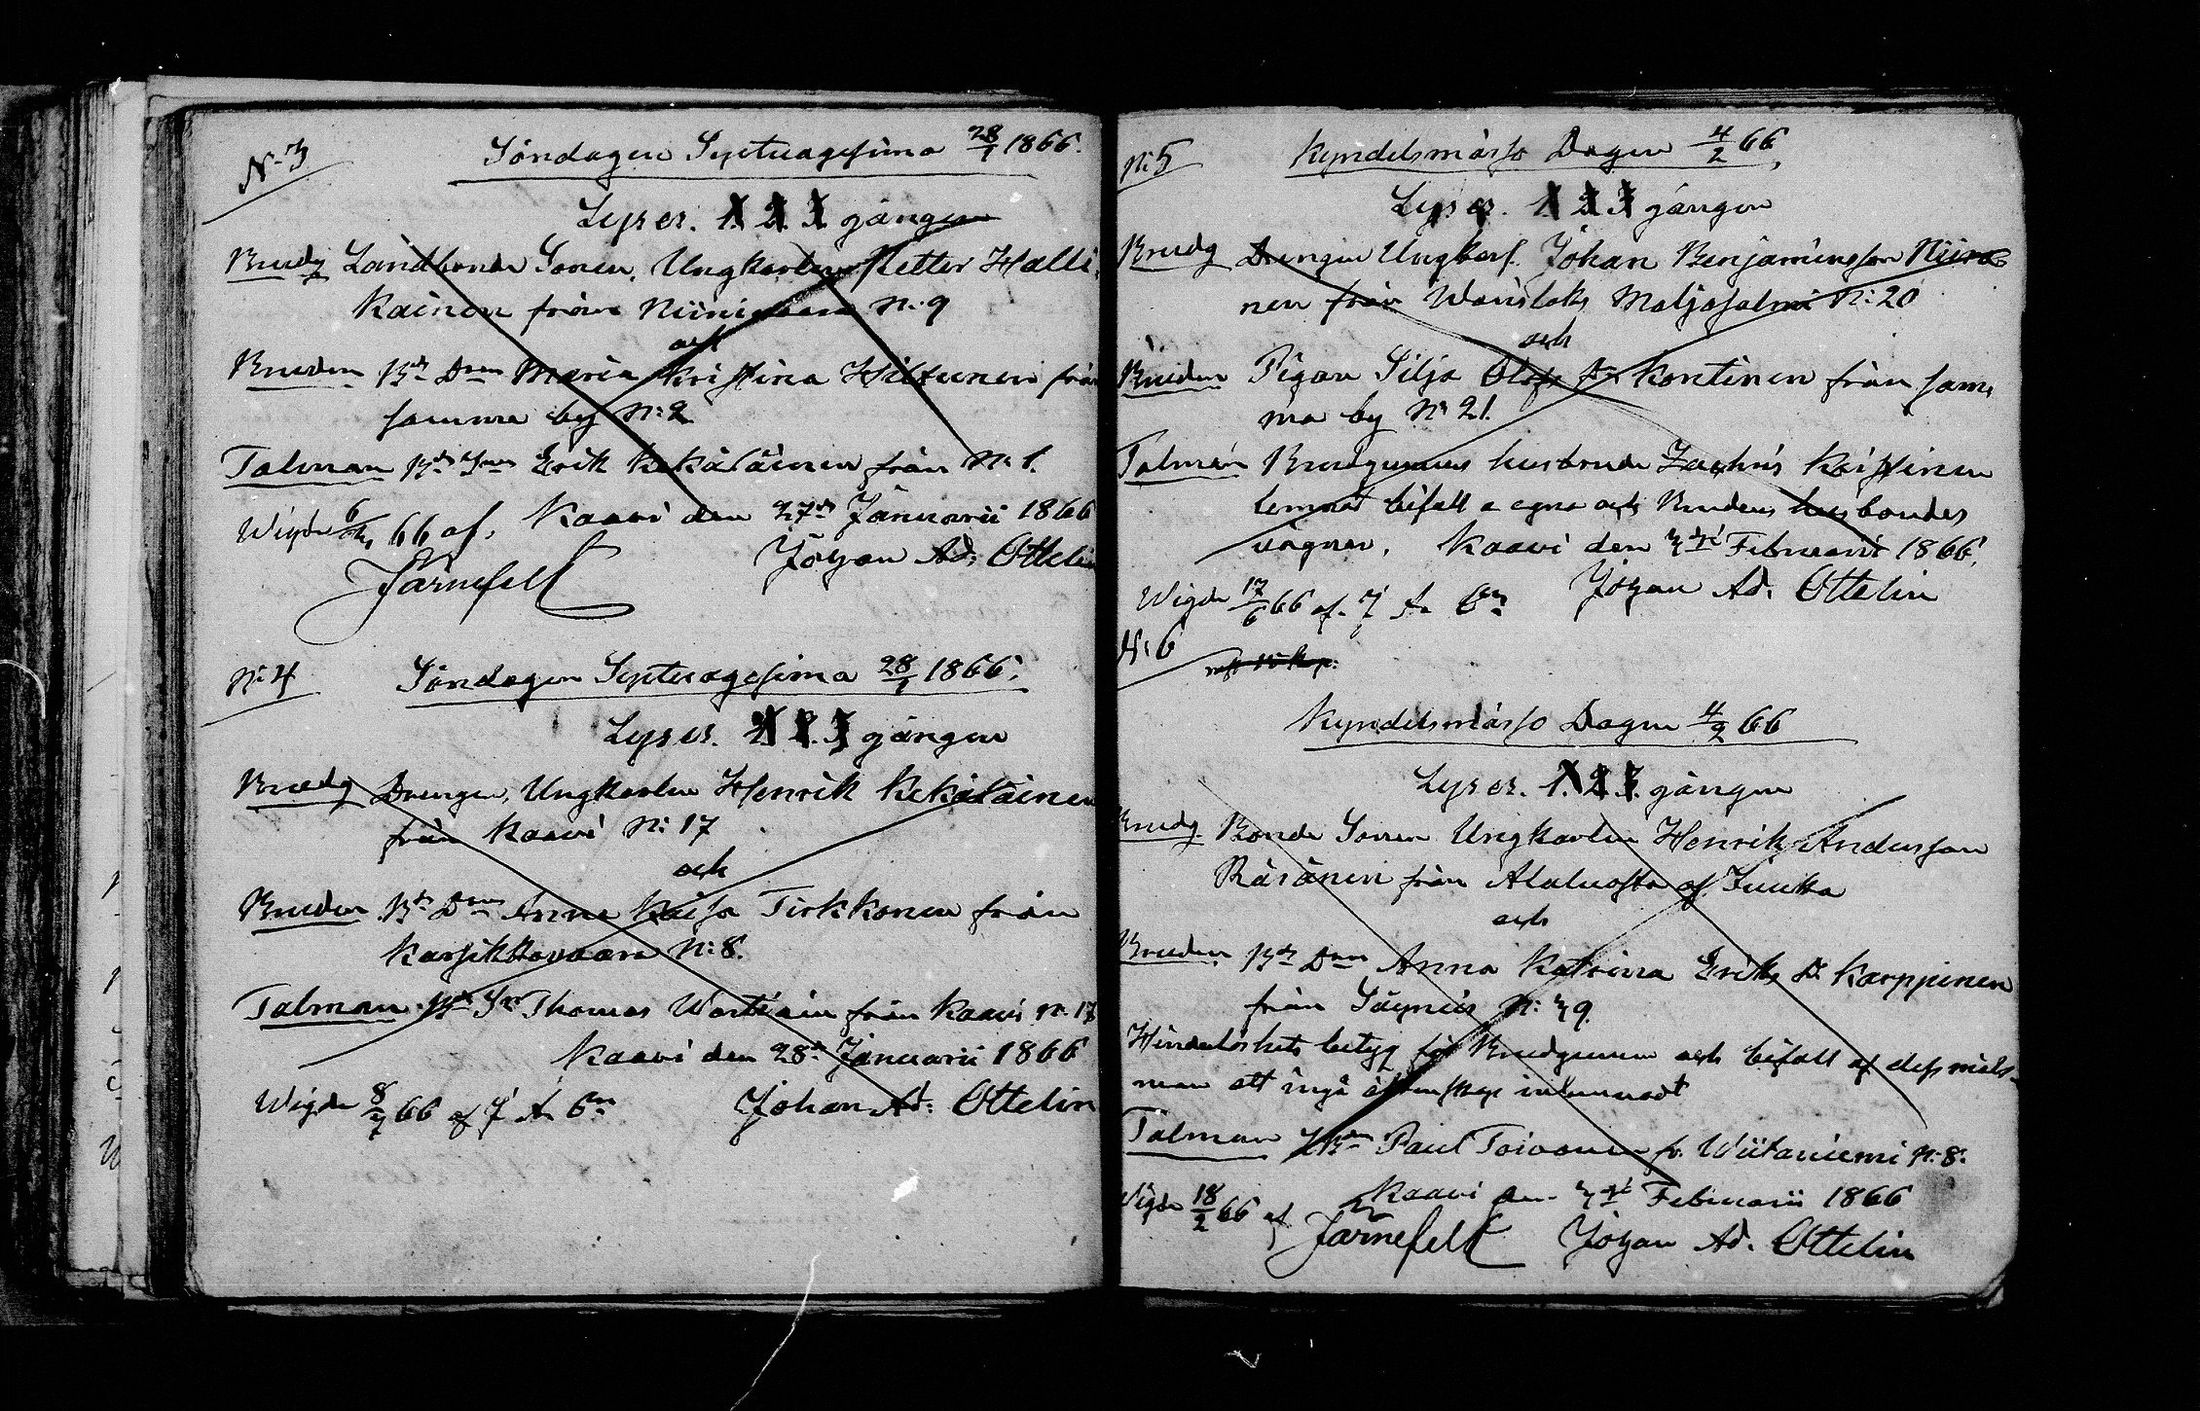 N:3 Söndagen Septuagesima 28/1 1866.
Lyses. 1. 2. 3 gången
Brudg Landbonde Sonen, Ungkarlen Petter Halli-
kainen från Niinivaara N:9
och
Bruden Bd Dren Maria Kristina Hiltunen från
samma by N:2
Talman Bd Sn Erik Kekäläinen från N:1.
Wigde 66 af. Kaavi den 27de Januarii 1866
Järnefelt Johan Ad: Ottelin
N:4 Söndagen Septuagesima 28/1 1866.
Lyses. 1. 2. 3 gången
Brudg Drengen, Ungkarlen Henrik Kekäläinen
från Kaavi N:17
och
Bruden Bd Dren Anna Kaisa Tirkkonen från
Karsikkovaara N:8.
Talman Bd Sn Thomas Wartiain från Kaavi N:17
Kaavi den 28de Januarii 1866
Wigde 8/7 66 af Johan Ad: Ottelin
N:5 Kyndelsmässo Dagen 4/2 66,
Lyses. 1. 2. 3 gången
Brudg Drengen Ungkarl. Johan Benjaminsson Niira-
nen från Wanislaks Maljasalmi N:20
och
Bruden Pigan Silja Olofs Dr Kontinen från sam-
ma by N:21.
Talman Brudgummens husbonde Zachris Kristinen
lemnat bifall egna och Brudens husbondes
vägnar, Kaavi den 3dje Februarii 1866.
Wigde 17/6 66 af. Johan Ad. Ottelin
N:6
Kyndelsmässo Dagen 4/2 66
Lyses. 1. 2. 3. gången
Brudg Bonde Sonen Ungkarlen Henrik Andersson
Räsänen från Alaluosta af Juuka
och
Bruden Bd Dren Anna Katrina Eriks Dr Karppinen
från Säyneis N:39.
Hinderlöshets betyg för Brudgummen och bifall af dess måls-
man att ingå äktenskap inlemnadt
Talman Paul Toivanen fr. Wiitaniemi N:8.
Kaavi den 3dje Februarii 1866
Wigde 18/2 66 af Järnefelt Johan Ad. Ottelin